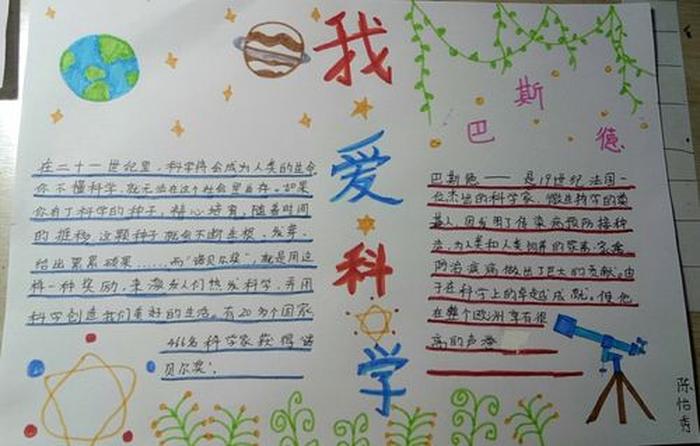 我爱科学
在二十一世纪里,科学将会成为人类的生命
你不懂科学,就无法在这个社会里生存。如果
你有了科学的种子,精心培育,随着时间
的推移,这颗种子就会不断生根、发芽、
结出累累硕果……而“诺贝尔奖”,就是用这
样一种奖励,来激发人们热爱科学,并用
科学创造我们美好的生活。有20多个国家
466名科学家获得诺
贝尔奖!
巴斯德
巴斯德——是19世纪法国一
位杰出的科学家,微生物学的奠
基人,因发用了传染病预防接种
法,为人类和人类饲养的家禽家畜
防治疾病做出了巨大的贡献。由
于在科学上的卓越成就,使他
在整个欧洲享有很
高的声誉
陈怡